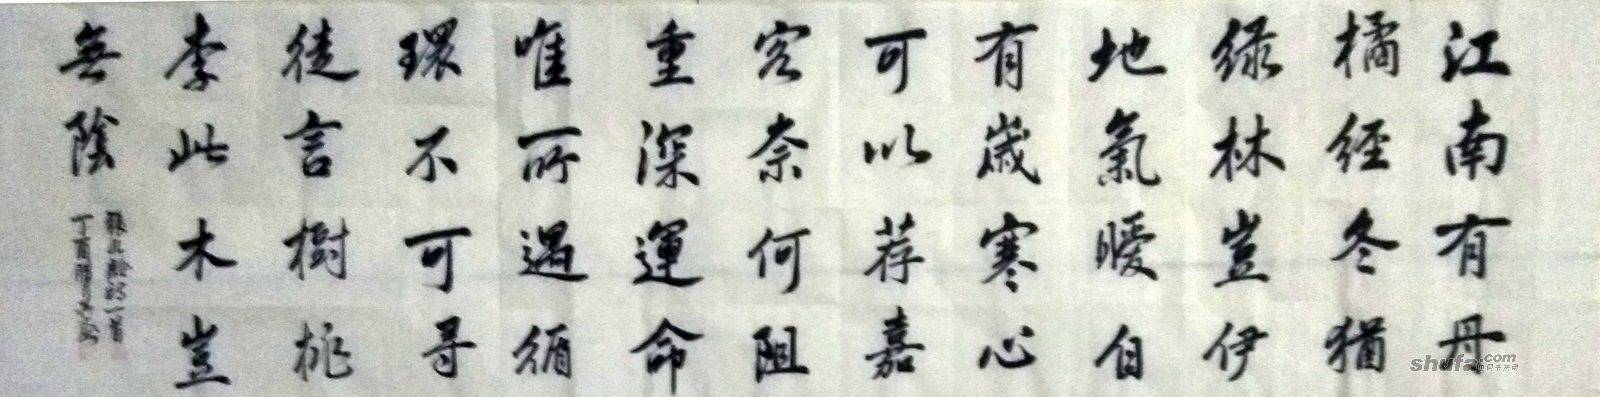 江南有丹
橘經冬猶
绿林豈伊
地氣暖自
有歲寒心
可以荐嘉
客奈何阻
重深運命
唯所遇循
環不可寻
徒言樹桃
李此木豈
無陰
張九齡詩一首
丁酉
shufa.com